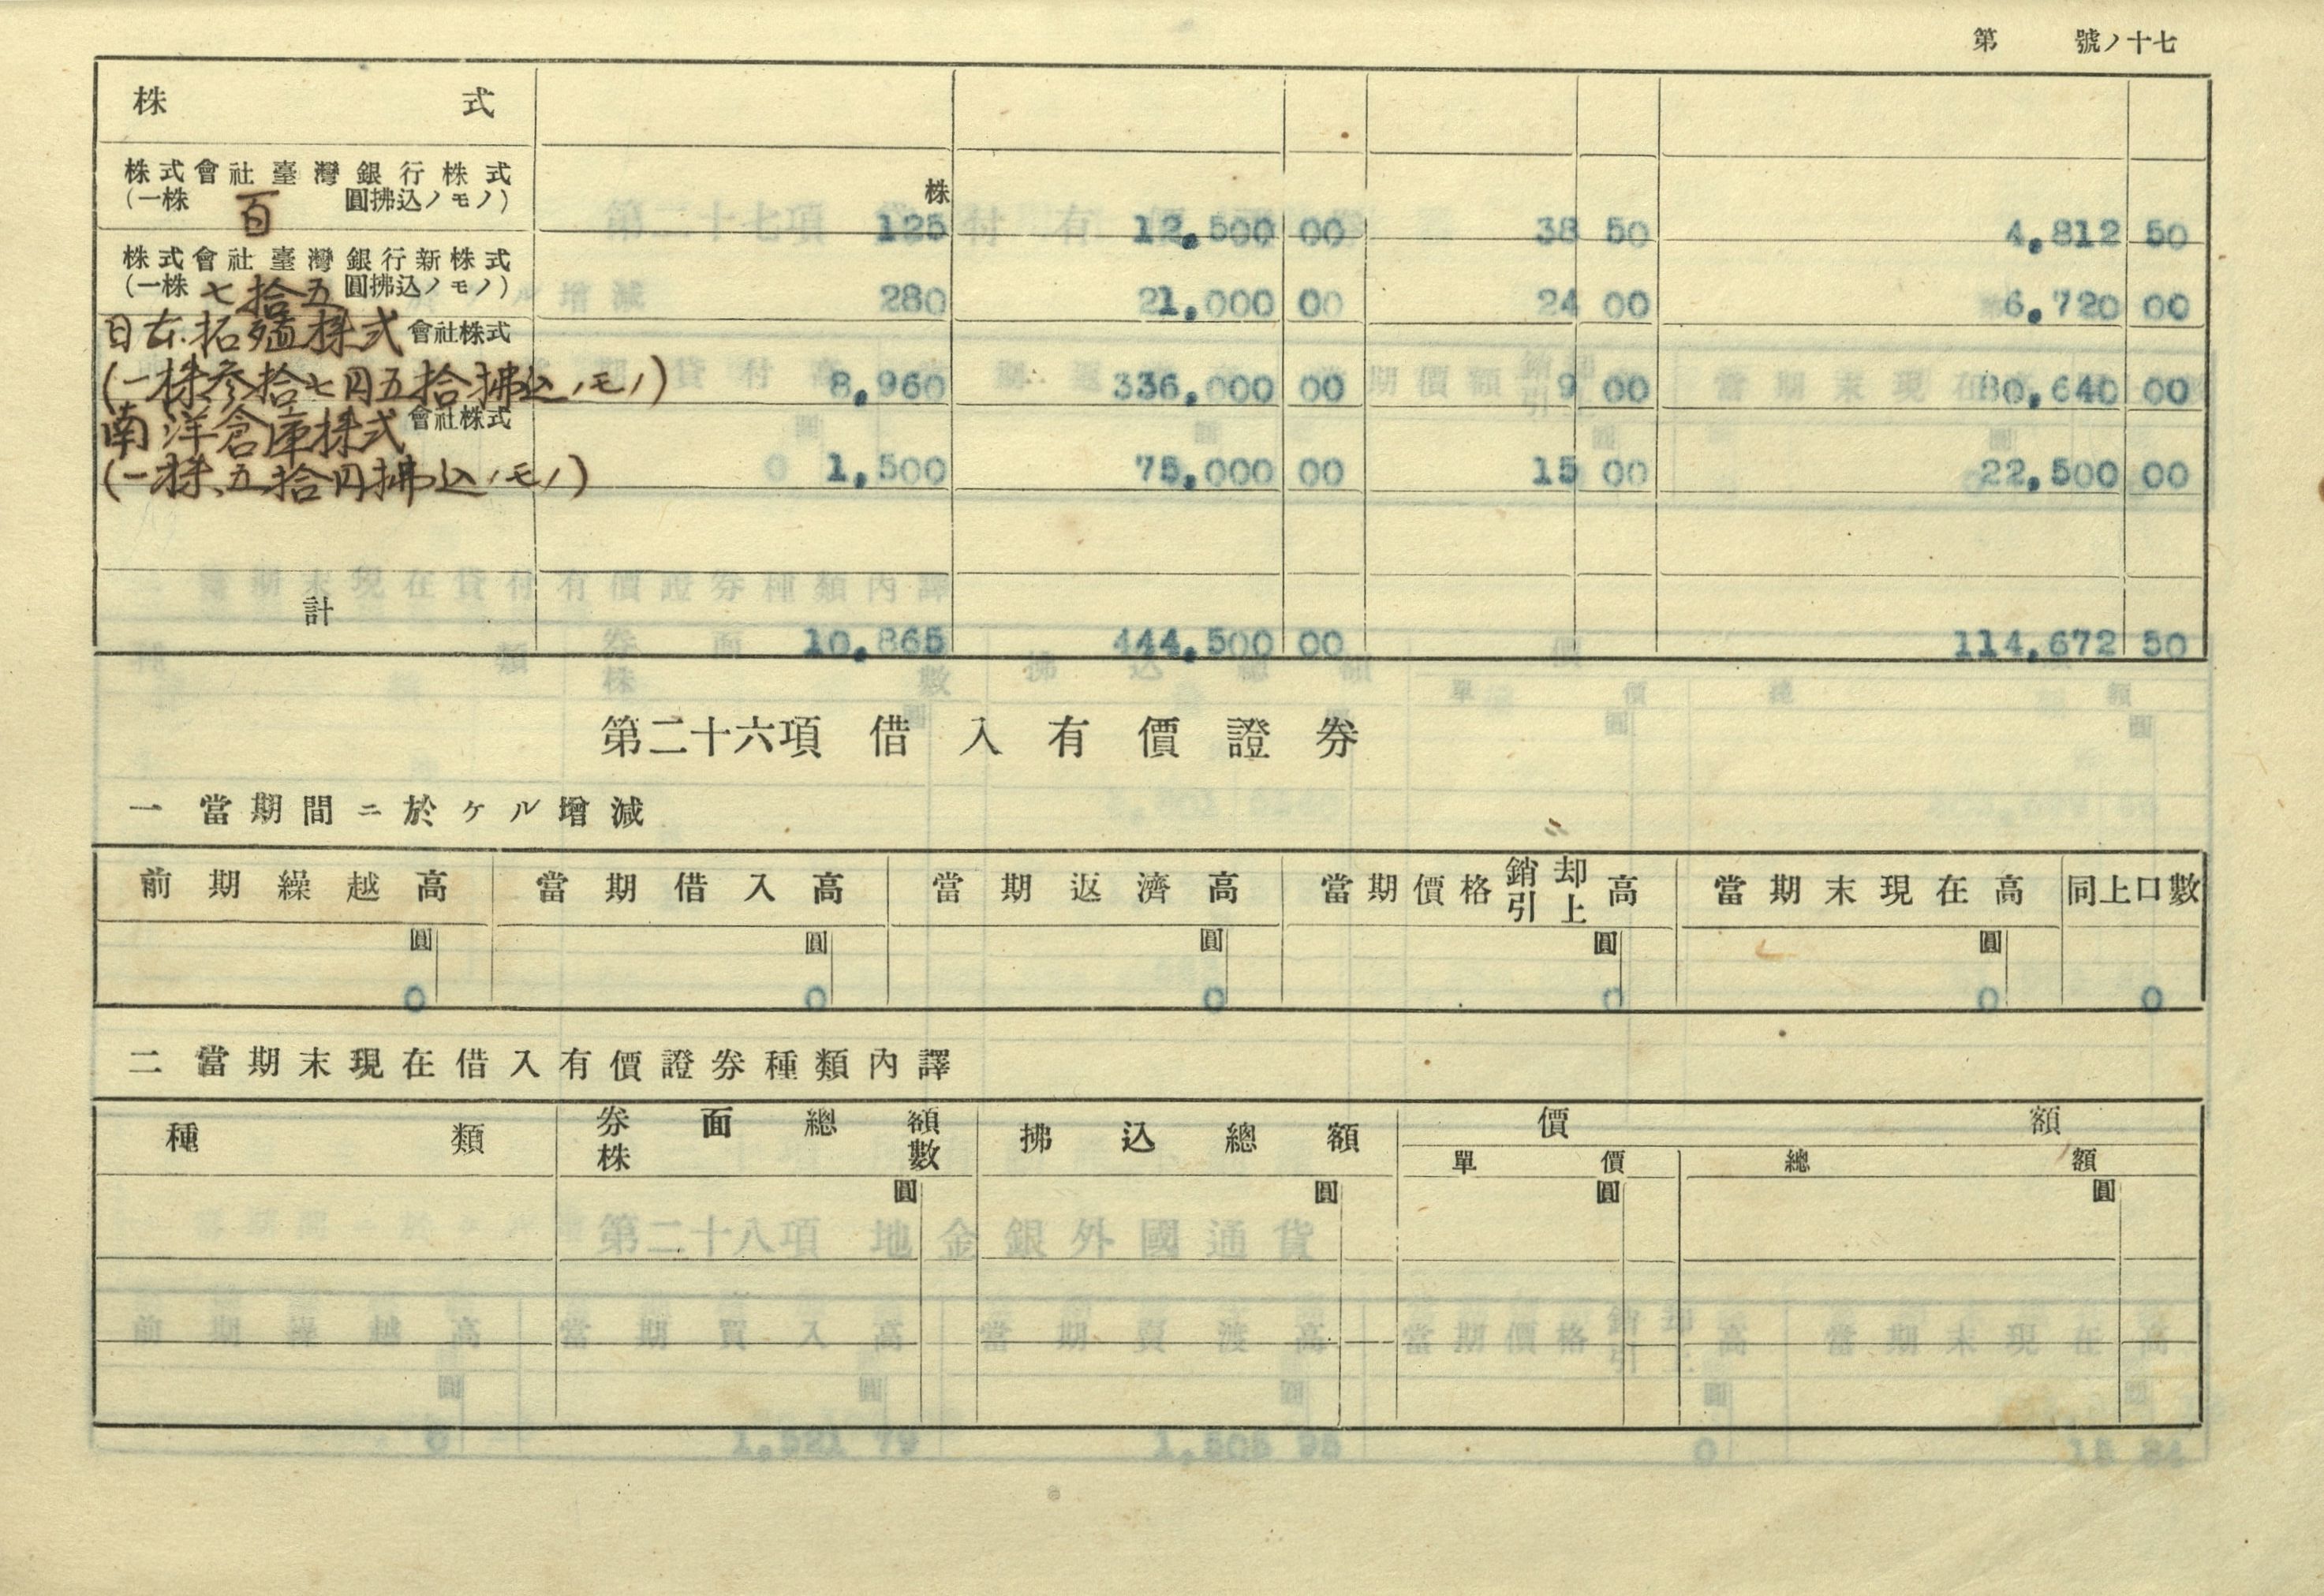 第 號ノ十七
株 式
株式會社臺灣銀行株式
(一株 百 圓拂込ノモノ) 株 125 12,500 00 38 50 4,812 50
株式會社臺灣銀行新株式
(一株 七拾五 圓拂込ノモノ) 280 21,000 00 24 00 6,720 00
日本拓殖株式會社株式
(一株参拾七円五拾拂込ノモノ) 8,960 336,000 00 9 00 80,640 00
南洋倉庫株式會社株式
(一株五拾円拂込ノモノ) 1,500 75,000 00 15 00 22,500 00
計 10,865 444,500 00 114,672 50
第二十六項 借入有價證券
一 當期間ニ於ケル増減
前期繰越高 當期借入高 當期返濟高 當期價格銷却引上高 當期末現在高 同上口數
圓 圓 圓 圓 圓
0 0 0 0 0 0
二 當期末現在借入有價證券種類內譯
種類 券面總額 拂込總額 價額
株數 單價 總額
圓 圓 圓 圓